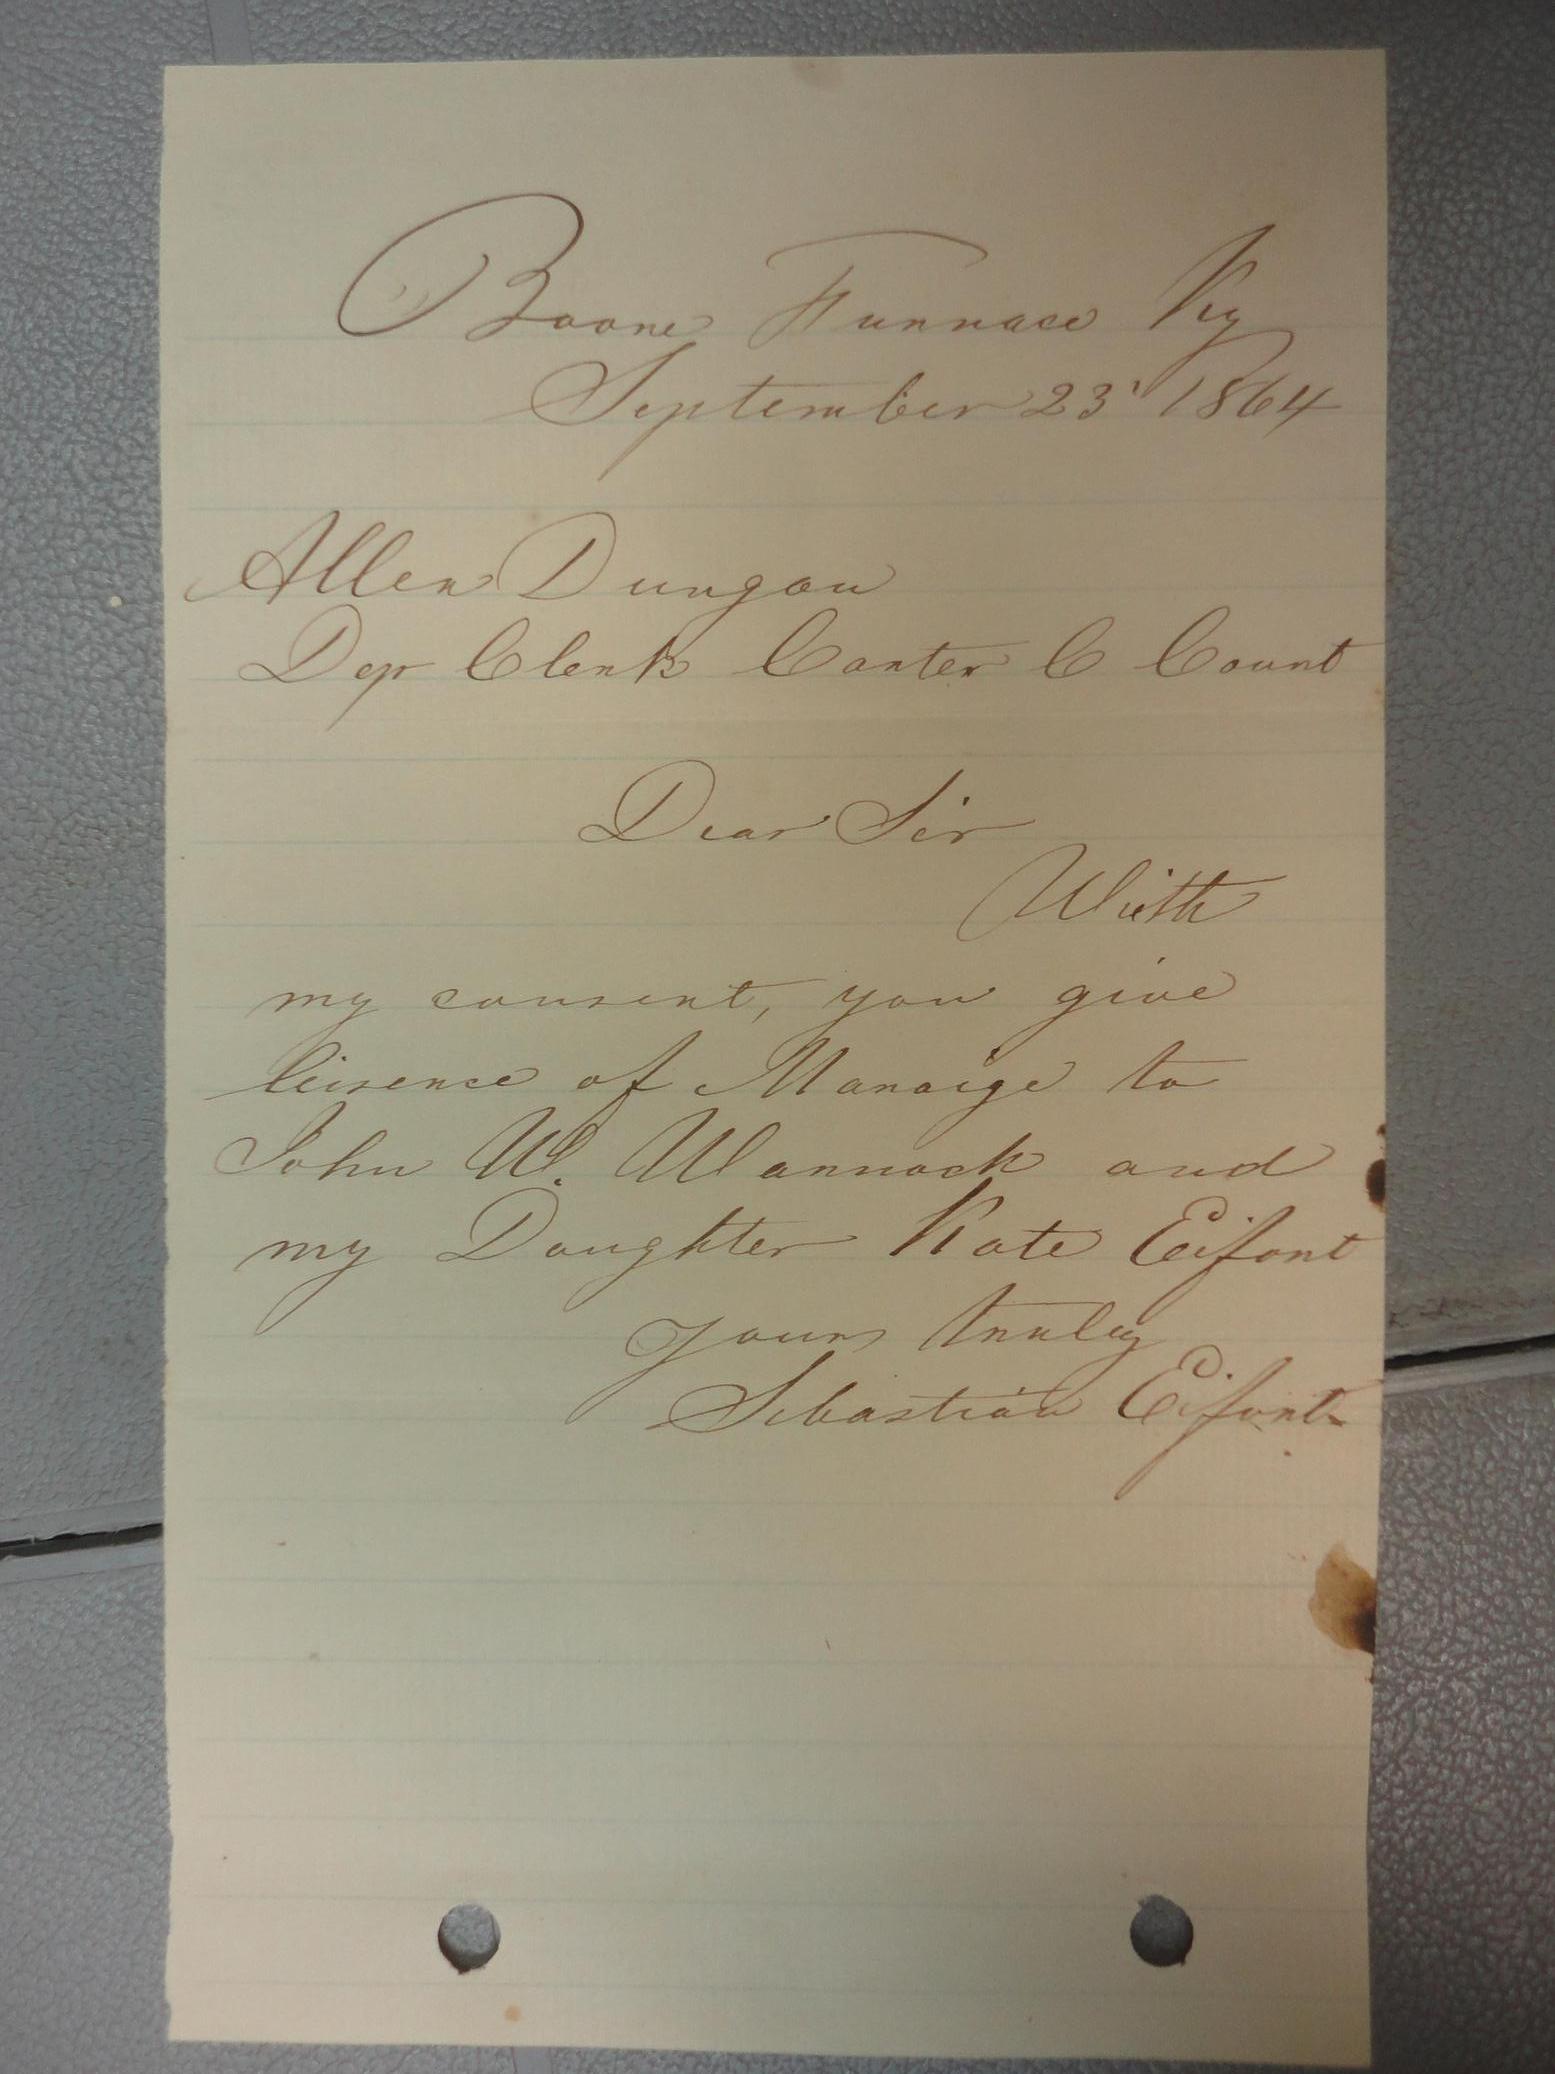 Boone Furnace Ky
September 23' 1864
Allen Dungan
Dep Clerk Carter C Court
Dear Sir
With
my consent, you give
lisence of Marraige to
John W. Warnock and
my Daughter Kate Eifort
yours truly
Sebastian Eifort